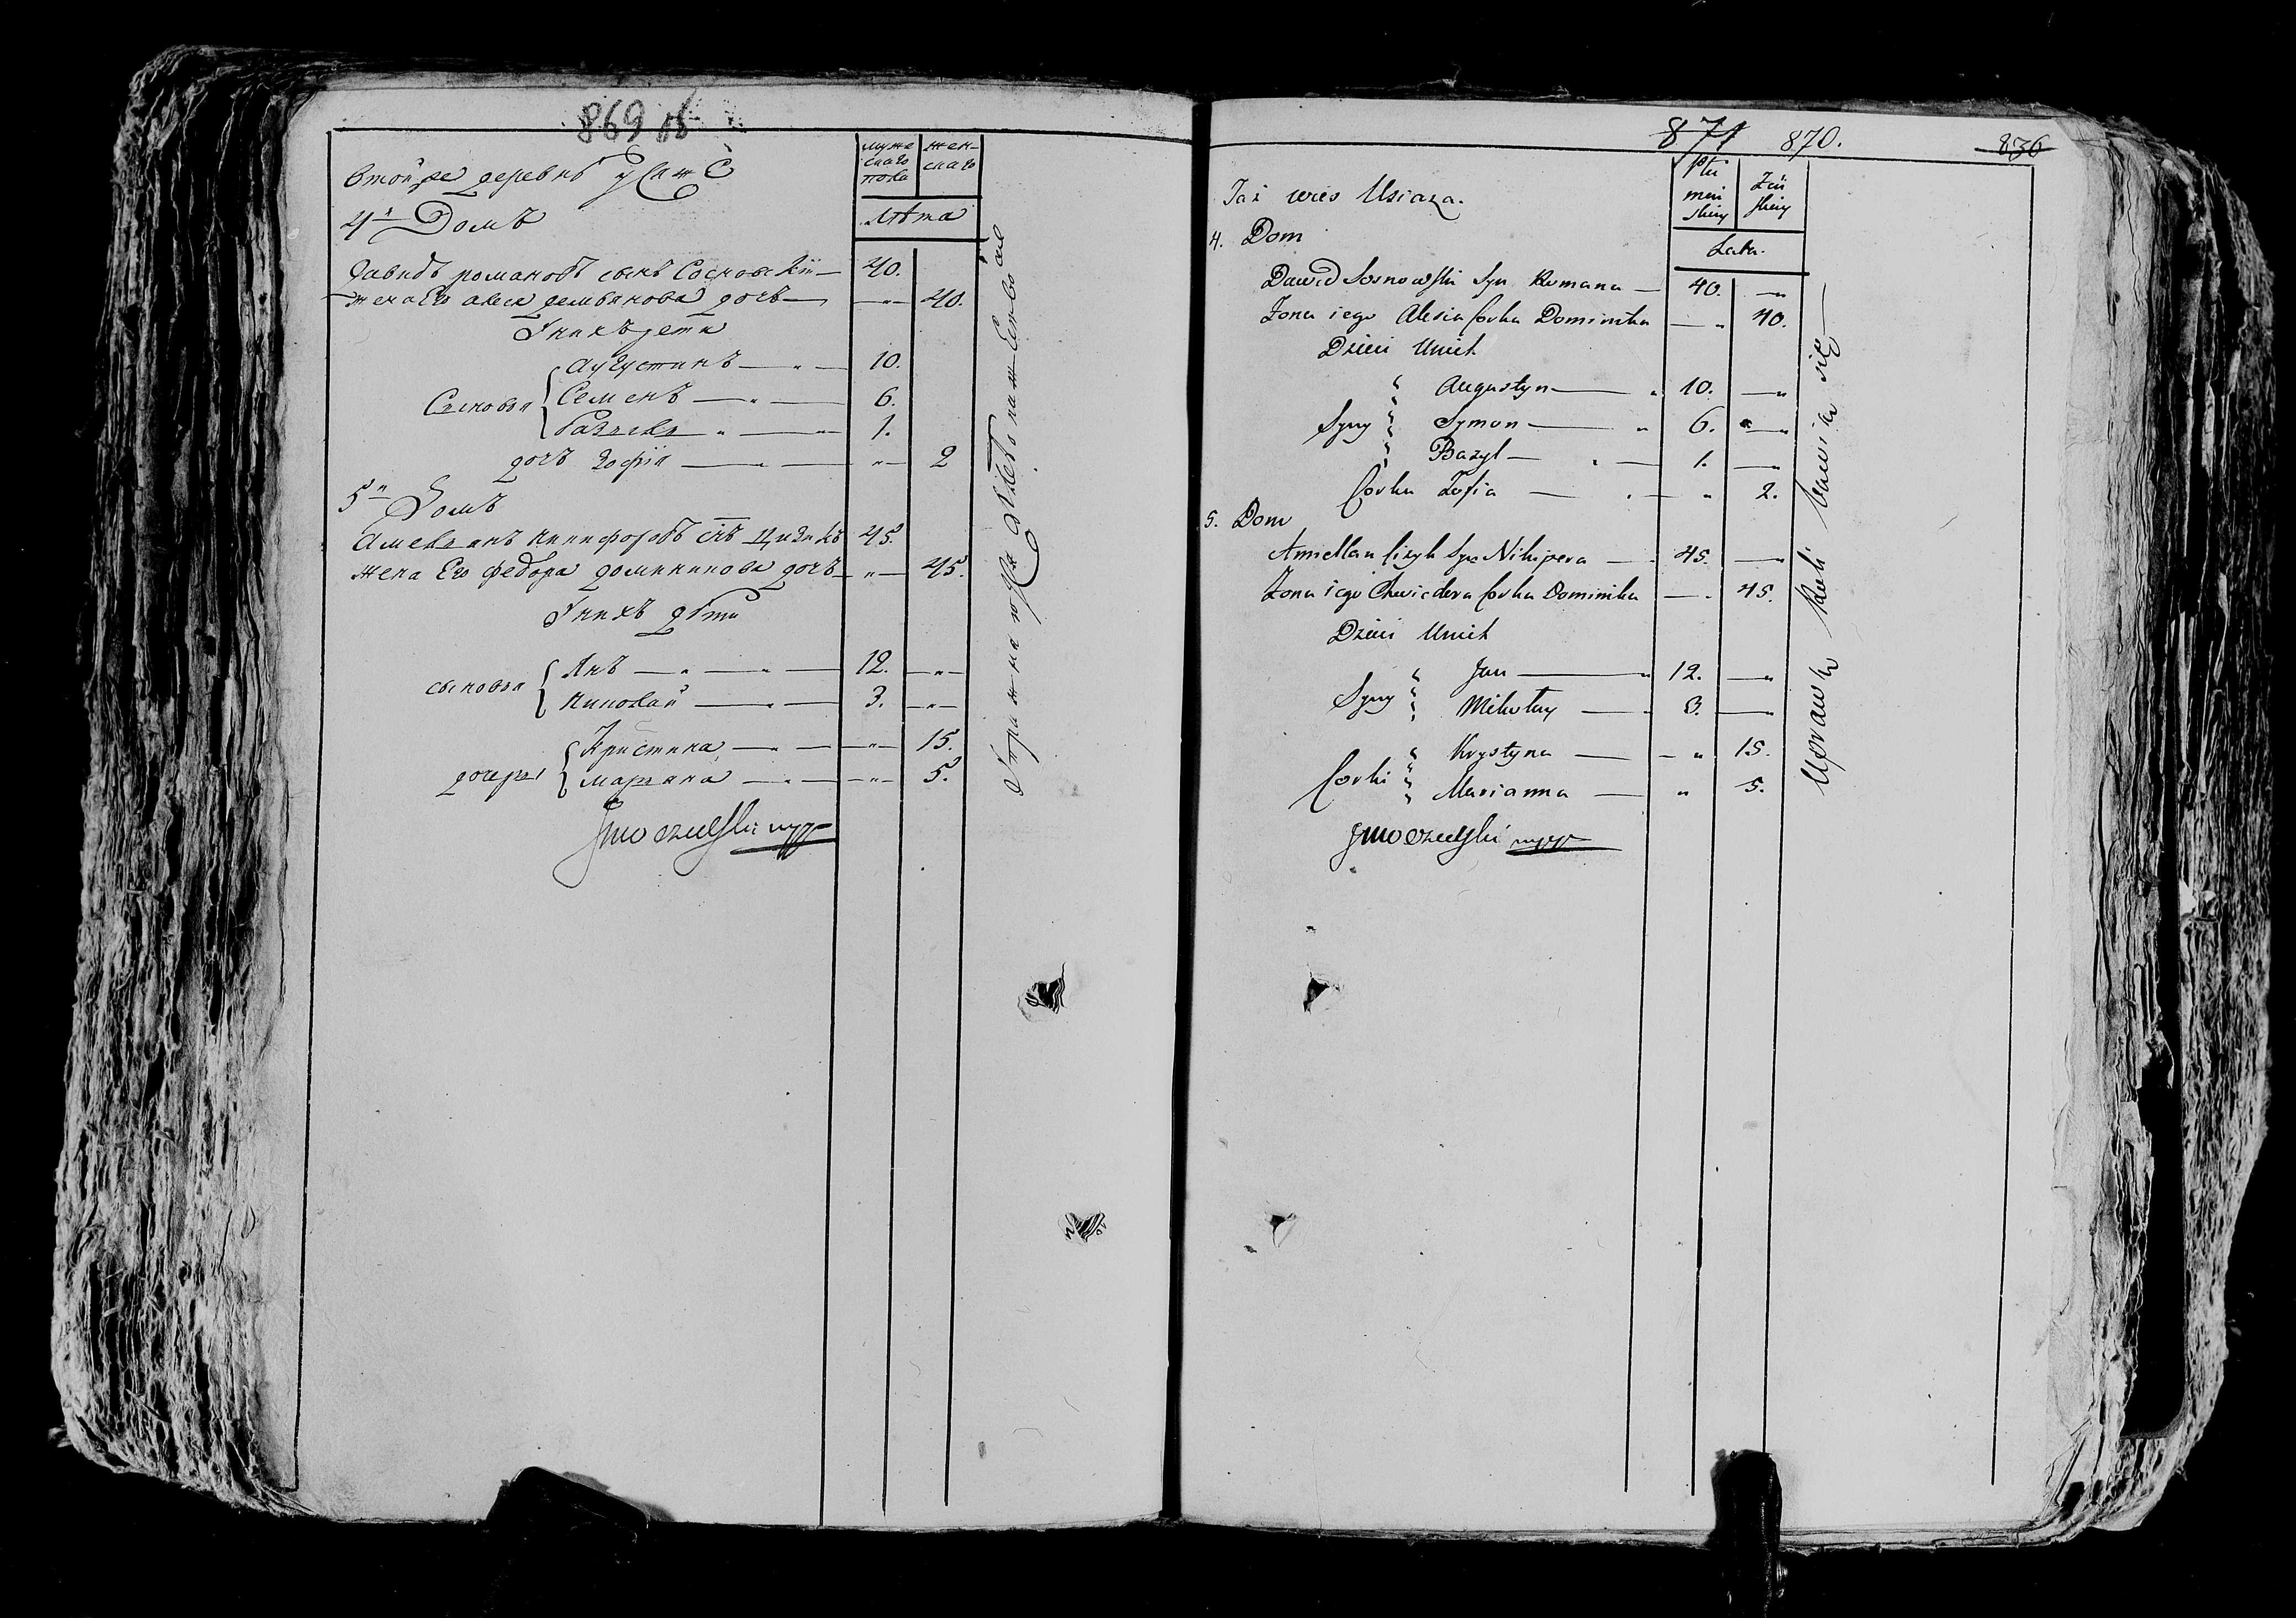 869 об
втой же деревнѣ Усажѣ
мужескаго пола
женскаго
лѣта
4й Домъ
Давидъ романовъ сынъ Сосновскій — 40.
жена Его алеся демьянова дочь — „ — 40.
У нихъ дети
Сыновья { Аугустинъ — „ — 10.
Семенъ — „ — 6.
Базыль „ — „ 1.
дочь Зофія — „ — 2
5й Домъ
Амельянъ никифоровъ снъ Цизикъ 45.
жена Его федора доминикова дочь — „ — 45.
У нихъ дѣти
сыновья { Янъ — „ — „ — 12. — „ —
николай — „ — 3. — „ —
дочери { Кристина — „ — „ — 15.
марьяна — „ — „ — 5.
871 870. 836
Taż wieś Usiaza.
Płci męskiey
Żeńskiey
Lata.
4. Dom
Dawid Sosnowski Syn Romana — 40. — „
Żona iego Alesia Corka Dominika — „ 40.
Dzieci Unich
Augustyn — „ 10. — „
Syny Symon — „ 6. — „
Bazyl — „ — 1. — „
Corka Zofia — „ — „ 2.
5. Dom
Amellan Cizyk Syn Nikipera — 45. —
Żona iego Chwiedera Corka Dominika — „ 45.
Dzieci Unich
Syny Jan — „ 12. — „
Mikołay — 3. — „
Corki Krystyna — „ 15.
Marianna — „ 5.